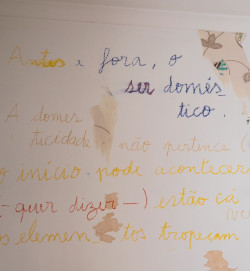 Antes e fora, o
ser domés
tico.
A domes
ticidade não pertence (
o início. pode acontecer
(- quer dizer -) estão cá
os elemen tos tropeçam